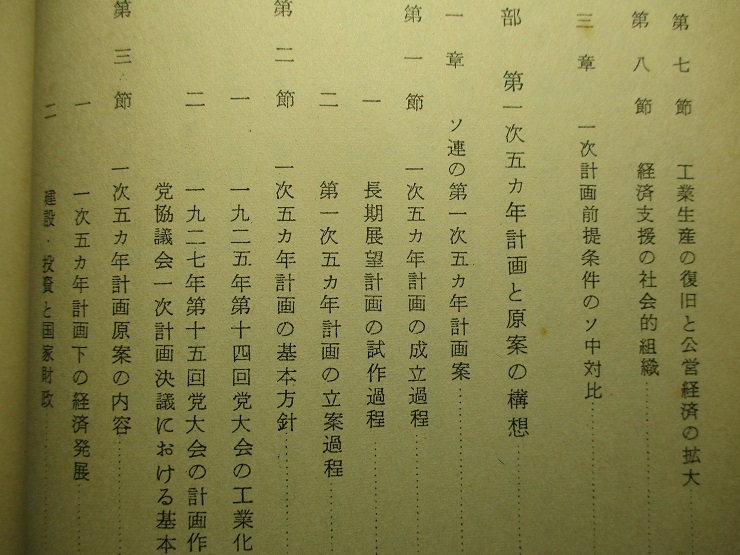 第七節 工業生産の復旧と公営経済の拡大
第八節 経済支援の社会的組織
三章 一次計画前提条件のソ中対比
部 第一次五カ年計画と原案の構想
一章 ソ連の第一次五カ年計画案
第一節 一次五カ年計画の成立過程
一 長期展望計画の試作過程
二 第一次五カ年計画の立案過程
第二節 一次五カ年計画の基本方針
一 一九二五年第十四回党大会の工業化
二 一九二七年第十五回党大会の計画作
党協議会一次計画決議における基本
第三節 一次五カ年計画原案の内容
一 一次五カ年計画下の経済発展
二 建設・投資と国家財政